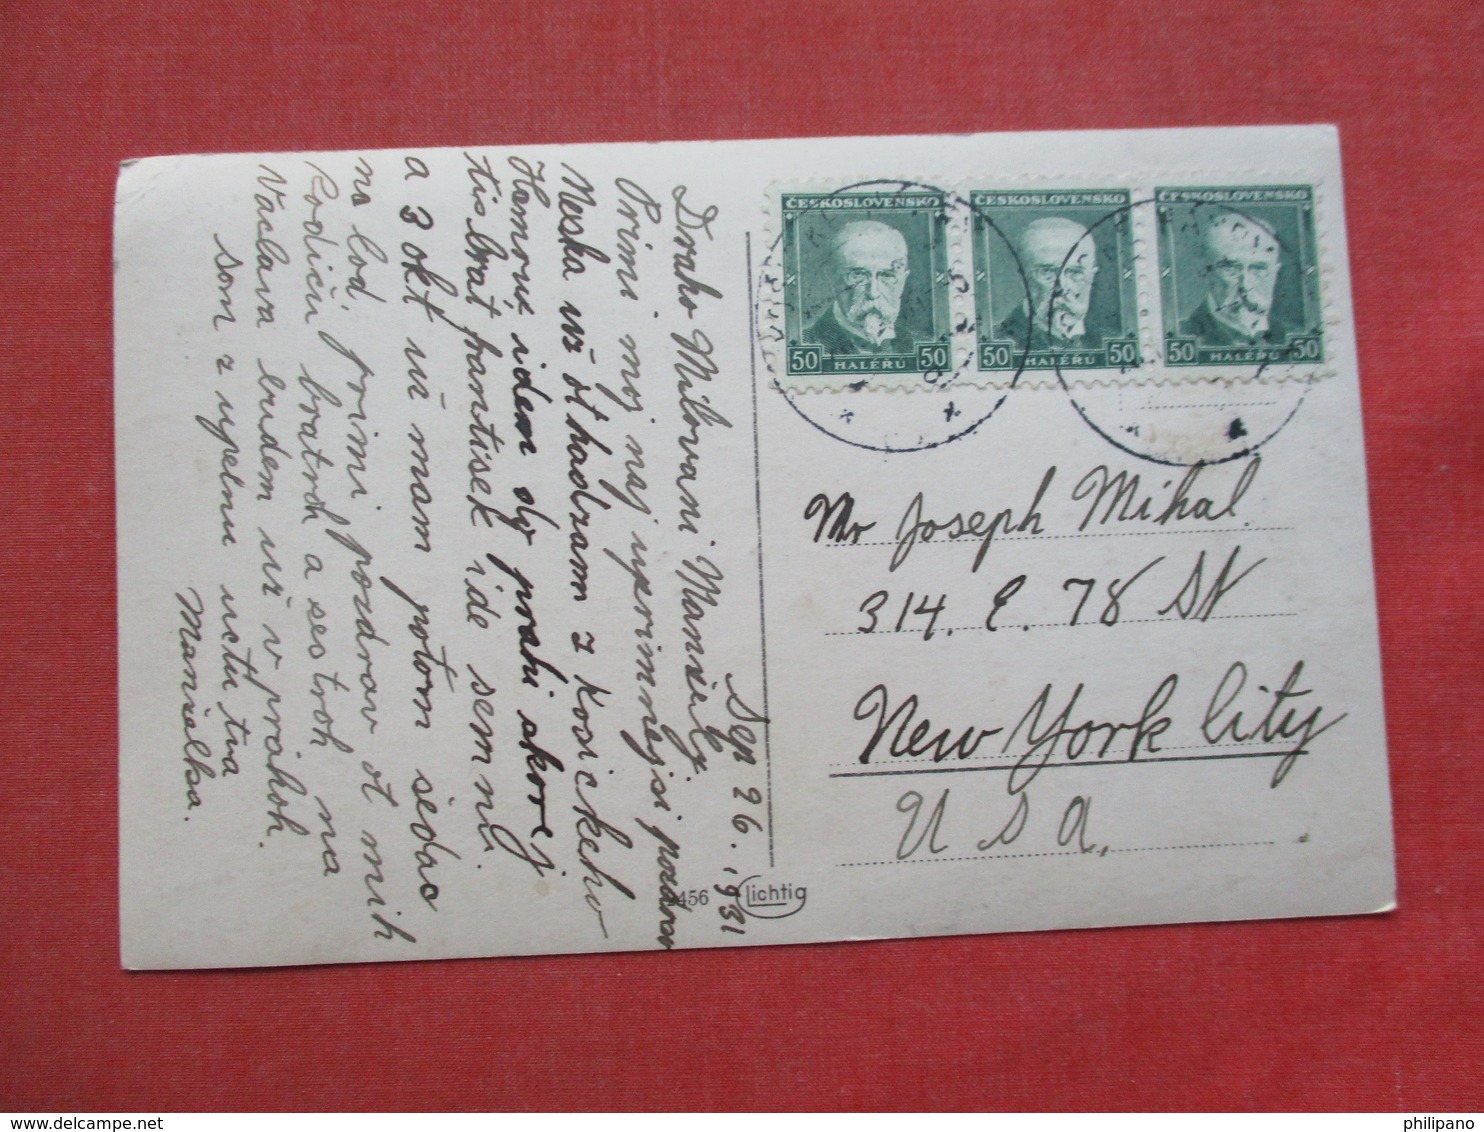 Sep 26. 1931
Draho Milovani Manžely.
Primi moj naj uprimnejsi pozdrav
Neska už othadzam z Kosickeho
Hamoru idem do prahi skorej
tis brat frantisek ide semnu.
a 3 okt už mam potom šedac
na lod primi pozdrav ot mih
Rodiču bratroh a sestroh na
Vaclava budem už v práhoh.
som z upelnu uctu tva
Manželka.
ČESKOSLOVENSKO
50 HALÉRŮ 50
ČESKOSLOVENSKO
50 HALÉRŮ 50
ČESKOSLOVENSKO
50 HALÉRŮ 50
Mr Joseph Mihal.
314. E. 78 St
New York City
U S A.
456
Lichtig
philipano